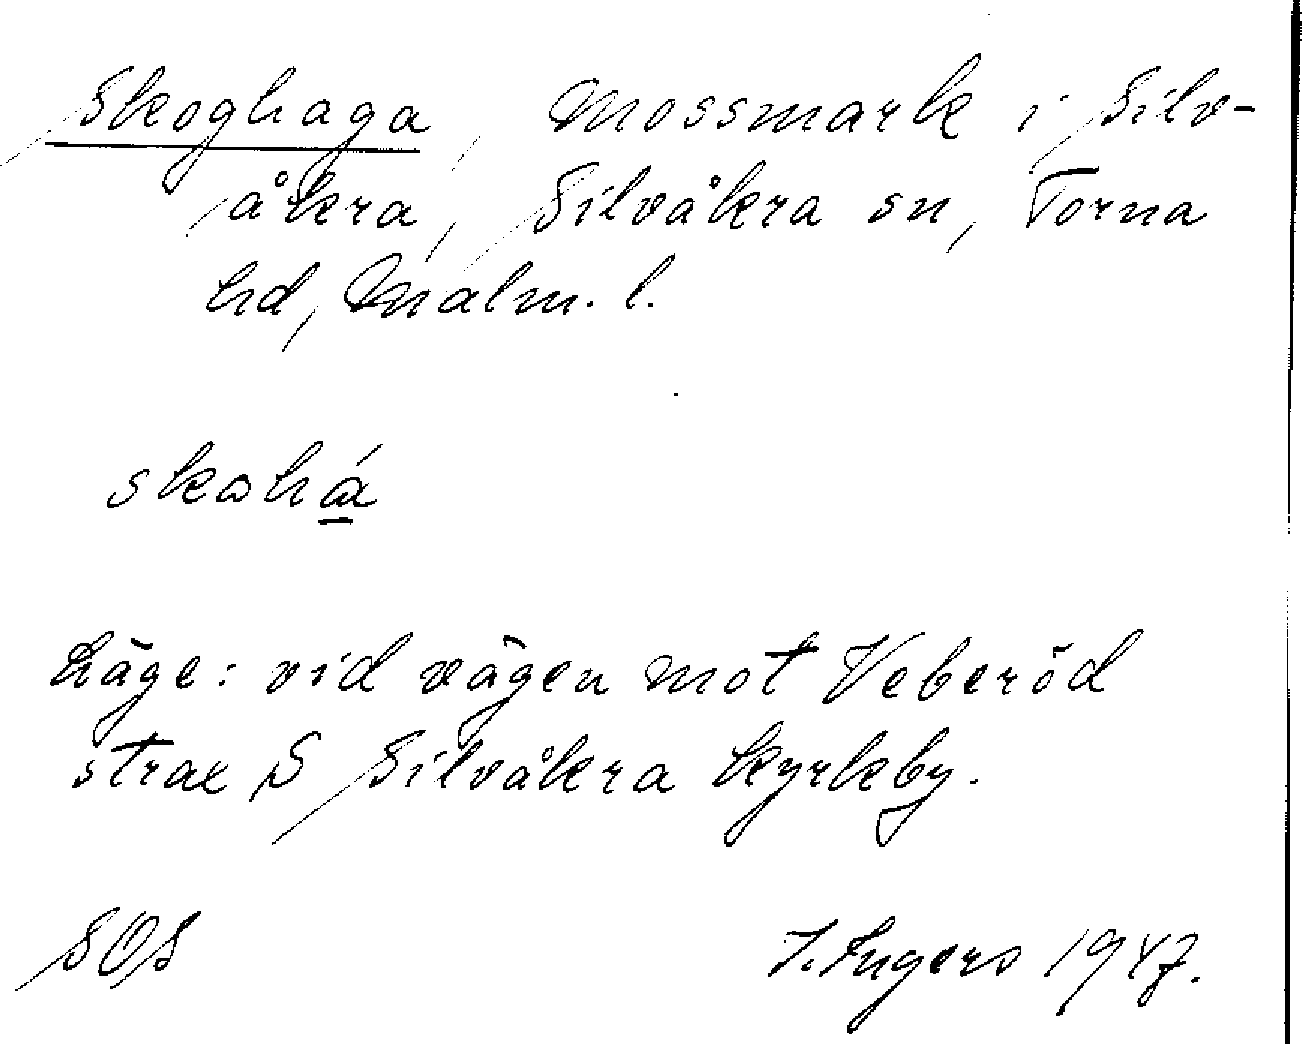 Skoghaga, Mossmark i Silv-
åkra, Silvåkra sn, Torna
hd, Malm. l.
skohá
Läge: vid vägen mot Veberöd
strax S Silvåkra kyrkby.
SOS I. Ingers 1947.